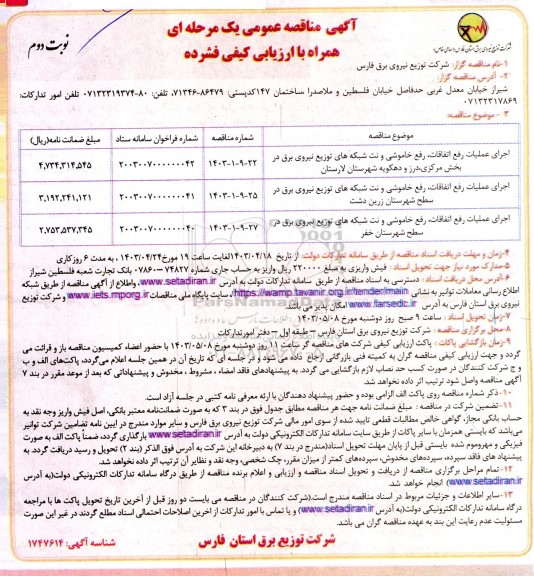 آگهی مناقصه عمومی یک مرحله ای
همراه با ارزیابی کیفی فشرده
نوبت دوم
شرکت توزیع نیروی برق استان فارس
۱-نام مناقصه گزار: شرکت توزیع نیروی برق فارس
۲- آدرس مناقصه گزار:
شیراز خیابان معدل غربی حدفاصل خیابان فلسطین و ملاصدرا ساختمان ۱۴۷کدپستی: ۸۶۴۷۹-۷۱۳۴۶، تلفن: ۸۰-۰۷۱۳۲۳۱۹۳۷۴ تلفن امور تدارکات:
۰۷۱۳۲۳۱۷۸۶۹
۳ - موضوع مناقصه:
موضوع مناقصه شماره مناقصه شماره فراخوان سامانه ستاد مبلغ ضمانت نامه(ریال)
اجرای عملیات رفع اتفاقات، رفع خاموشی و نت شبکه های توزیع نیروی برق در بخش مرکزی،درز و دهکویه شهرستان لارستان ۲۲-۹-۱-۱۴۰۳ ۲۰۰۳۰۰۷۰۰۰۰۰۰۰۴۲ ۴,۷۳۴,۳۱۴,۵۴۵
اجرای عملیات رفع اتفاقات، رفع خاموشی و نت شبکه های توزیع نیروی برق در سطح شهرستان زرین دشت ۲۵-۹-۱-۱۴۰۳ ۲۰۰۳۰۰۷۰۰۰۰۰۰۰۴۱ ۳,۱۹۲,۲۴۱,۱۲۱
اجرای عملیات رفع اتفاقات، رفع خاموشی و نت شبکه های توزیع نیروی برق در سطح شهرستان خفر ۲۷-۹-۱-۱۴۰۳ ۲۰۰۳۰۰۷۰۰۰۰۰۰۰۴۰ ۲,۷۵۳,۵۳۷,۳۴۵
۴-زمان و مهلت دریافت اسناد مناقصه از طریق سامانه تدارکات دولت: از تاریخ ۱۴۰۳/۰۴/۱۸لغایت ساعت ۱۹ مورخ۱۴۰۳/۰۴/۲۴ ، به مدت ۶ روزکاری
۵-مدارک مورد نیاز جهت تحویل اسناد : فیش واریزی به مبلغ ۲۲۰۰۰۰ ریال واریز به حساب جاری شماره ۷۴۸۲۷-۰۷۸۶۰ بانک تجارت شعبه فلسطین شیراز
۶-آدرس محل دریافت اسناد : دسترسی به اسناد مناقصه از طریق سامانه تدارکات دولت به آدرس www.setadiran.ir، واطلاع از آگهی مناقصه از طریق شبکه
اطلاع رسانی معاملات توانیر به نشانی https://wamp.tavanir.org.ir/tender/main، سایت پایگاه ملی مناقصات www.iets.mporg.ir و شرکت توزیع
نیروی برق استان فارس به آدرس www.farsedc.ir امکان پذیر می باشد.
۷-زمان تحویل اسناد : ساعت ۹ صبح روز دوشنبه مورخ ۱۴۰۳/۰۵/۰۸
۸-محل برگزاری مناقصه : شرکت توزیع نیروی برق استان فارس – طبقه اول – دفتر امورتدارکات
۹- زمان بازگشایی پاکات : پاکت ارزیابی کیفی شرکت های مناقصه گر ساعت ۱۱ روز دوشنبه مورخ ۱۴۰۳/۰۵/۰۸ با حضور اعضاء کمیسیون مناقصه باز و قرائت می
گردد و جهت ارزیابی کیفی مناقصه گران به کمیته فنی بازرگانی ارجاع داده می شود و در جلسه ای که تاریخ آن در همین جلسه اعلام می‌گردد، پاکت‌های الف و ب
و ج شرکت کنندگان در صورت کسب حد نصاب لازم بازگشایی می گردد. به پیشنهادهای فاقد امضاء ، مشروط ، مخدوش و پیشنهاداتی که بعد از موعد مقرر در بند ۷
آگهی مناقصه واصل شود ترتیب اثر داده نخواهد شد.
۱۰-ذکر شماره مناقصه روی پاکت الف الزامی بوده و حضور پیشنهاد دهندگان با ارائه معرفی نامه کشی در جلسه آزاد است.
۱۱-تضمین شرکت در مناقصه : مبلغ ضمانت نامه جهت هر مناقصه مطابق جدول فوق در بند ۳ که به صورت ضمانت‌نامه معتبر بانکی، اصل فیش واریز وجه نقد به
حساب بانک مجاز، گواهی خالص مطالبات قطعی تایید شده از سوی امور مالی شرکت توزیع نیروی برق فارس و سایر موارد مندرج در آیین نامه تضامین شرکت توانیر
می‌باشد که بایستی همزمان با سایر پاکات از طریق سایت سامانه تدارکات الکترونیکی دولت به آدرس www.setadiran.ir بارگذاری گردد، ضمناً پاکت الف به صورت
فیزیکی و مهروموم شده بایستی قبل از پایان مهلت تحویل اسناد(مندرج در بند ۷) به دبیرخانه این شرکت به آدرس فوق الذکر (بند ۲) تحویل و رسید دریافت گردد. به
پیشنهاد های فاقد سپرده، سپرده‌های مخدوش، سپرده‌های کمتر از میزان مقرر، چک شخصی، وجه نقد و نظایر آن ترتیب اثر داده نخواهد شد.
۱۲-تمام مراحل برگزاری مناقصه از دریافت و تحویل اسناد مناقصه و ارزیابی و اعلام برنده مناقصه از طریق درگاه سامانه تدارکات الکترونیکی دولت(به آدرس
www.setadiran.ir) انجام خواهد شد.
۱۳-سایر اطلاعات و جزئیات مربوط در اسناد مناقصه مندرج است.(شرکت کنندگان در مناقصه می بایست دو روز قبل از آخرین تاریخ تحویل پاکت ها با مراجعه
درگاه سامانه تدارکات الکترونیکی دولت(به آدرس www.setadiran.ir) و یا تماس با امور تدارکات از آخرین اصلاحات احتمالی اسناد مطلع گردند در غیر این صورت
مسئولیت عدم رعایت این بند به عهده مناقصه گران می باشد.
شرکت توزیع برق استان فارس
شناسه آگهی: ۱۷۴۷۶۱۴